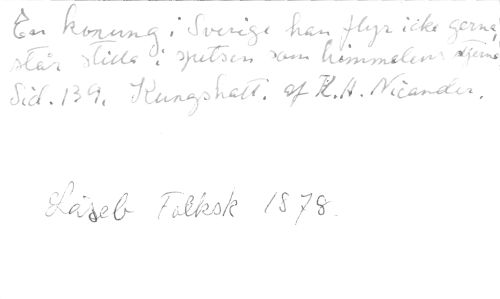 En konung i Sverige han flyr icke gerna,
står stilla i spetsen som himmelens stjerna
Sid. 139. Kungshatt. af K. A. Nicander.
Läseb Folksk 1878.